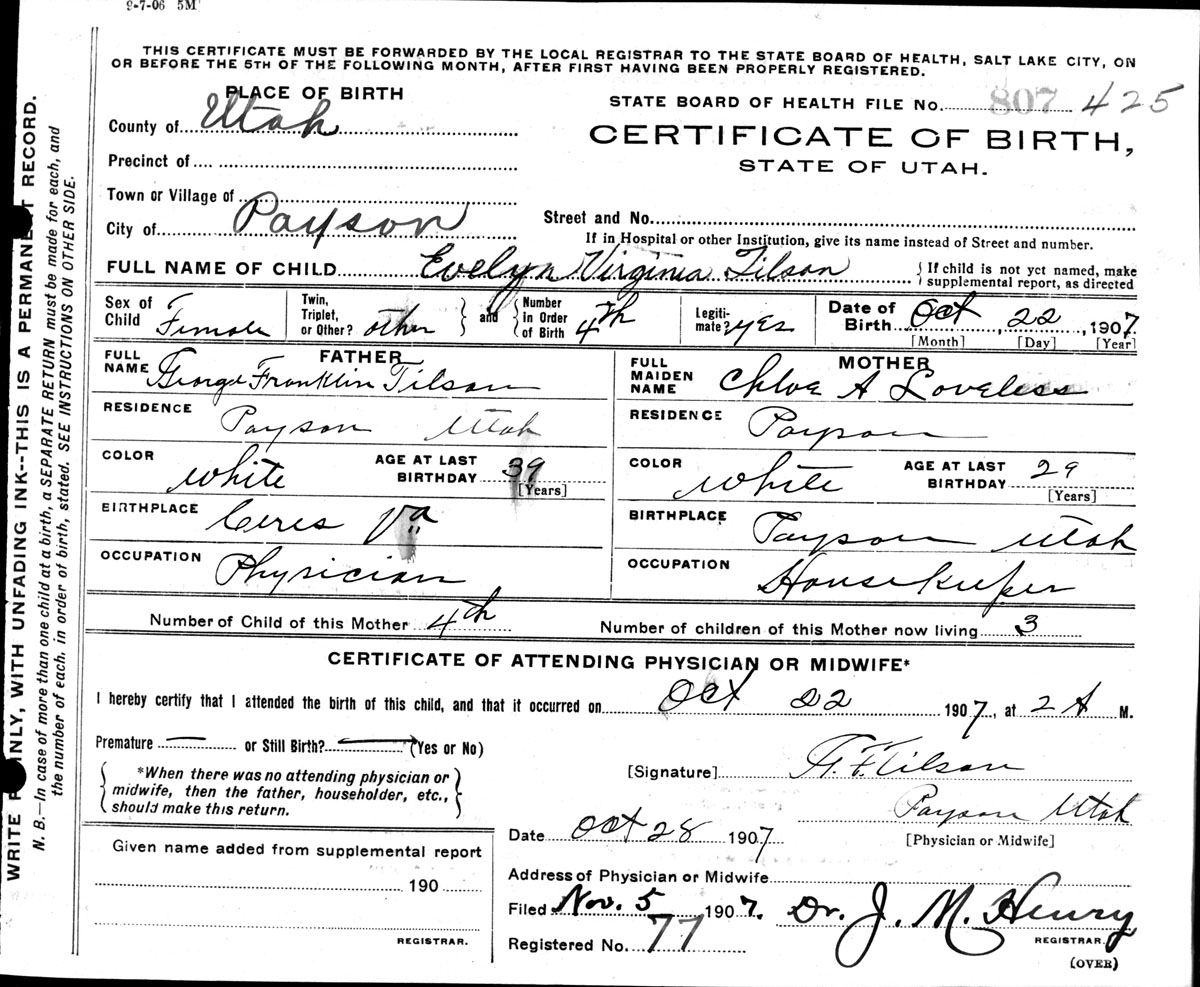 9-7-06 5M
THIS CERTIFICATE MUST BE FORWARDED BY THE LOCAL REGISTRAR TO THE STATE BOARD OF HEALTH, SALT LAKE CITY, ON
OR BEFORE THE 5TH OF THE FOLLOWING MONTH, AFTER FIRST HAVING BEEN PROPERLY REGISTERED.
PLACE OF BIRTH
County of Utah
Precinct of
Town or Village of
City of Payson
STATE BOARD OF HEALTH FILE No. 807 425
CERTIFICATE OF BIRTH,
STATE OF UTAH.
Street and No.
If in Hospital or other Institution, give its name instead of Street and number.
FULL NAME OF CHILD Evelyn Virginia Tilson { If child is not yet named, make
supplemental report, as directed
Sex of Child Female
Twin, Triplet, or Other? other } and { Number in Order of Birth 4th
Legiti-mate? yes
Date of Birth Oct, 22, 1907
[Month] [Day] [Year]
FATHER
FULL NAME George Franklin Tilson
RESIDENCE Payson Utah
COLOR White AGE AT LAST BIRTHDAY 39
[Years]
BIRTHPLACE Ceres Va
OCCUPATION Physician
MOTHER
FULL MAIDEN NAME Chloe A Loveless
RESIDENCE Payson
COLOR White AGE AT LAST BIRTHDAY 29
[Years]
BIRTHPLACE Payson Utah
OCCUPATION Housekeeper
Number of Child of this Mother 4th Number of children of this Mother now living 3
CERTIFICATE OF ATTENDING PHYSICIAN OR MIDWIFE*
I hereby certify that I attended the birth of this child, and that it occurred on Oct 22 1907, at 2 A M.
Premature — or Still Birth? — (Yes or No)
{ *When there was no attending physician or
midwife, then the father, householder, etc.,
should make this return. }
[Signature] Tilson
Payson Utah
[Physician or Midwife]
Date Oct 28 1907
Given name added from supplemental report
190
REGISTRAR.
Address of Physician or Midwife
Filed Nov. 5 1907. Dr. J. M. Henry
REGISTRAR.
Registered No. 77
(OVER)
WRITE PLAINLY, WITH UNFADING INK--THIS IS A PERMANENT RECORD.
N. B.—In case of more than one child at a birth, a SEPARATE RETURN must be made for each, and
the number of each, in order of birth, stated. SEE INSTRUCTIONS ON OTHER SIDE.